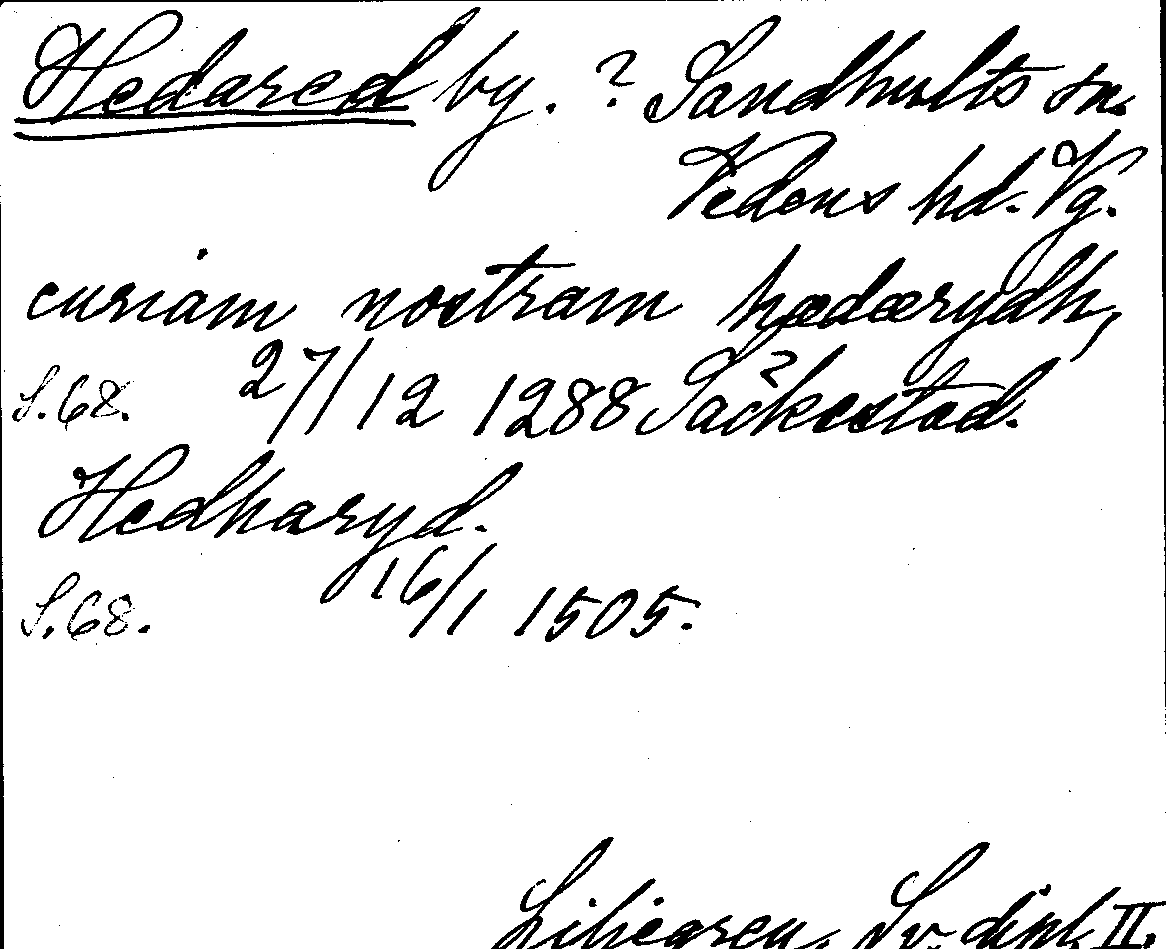 Hedared by. ? Sandhults sn.
Vedens hd. Vg.
curiam nostram hædærydh,
S.68. 27/12 1288 Säckestad.
Hedharyd.
S.68. 16/1 1505.
Liliegren, Sv. dipl. II.